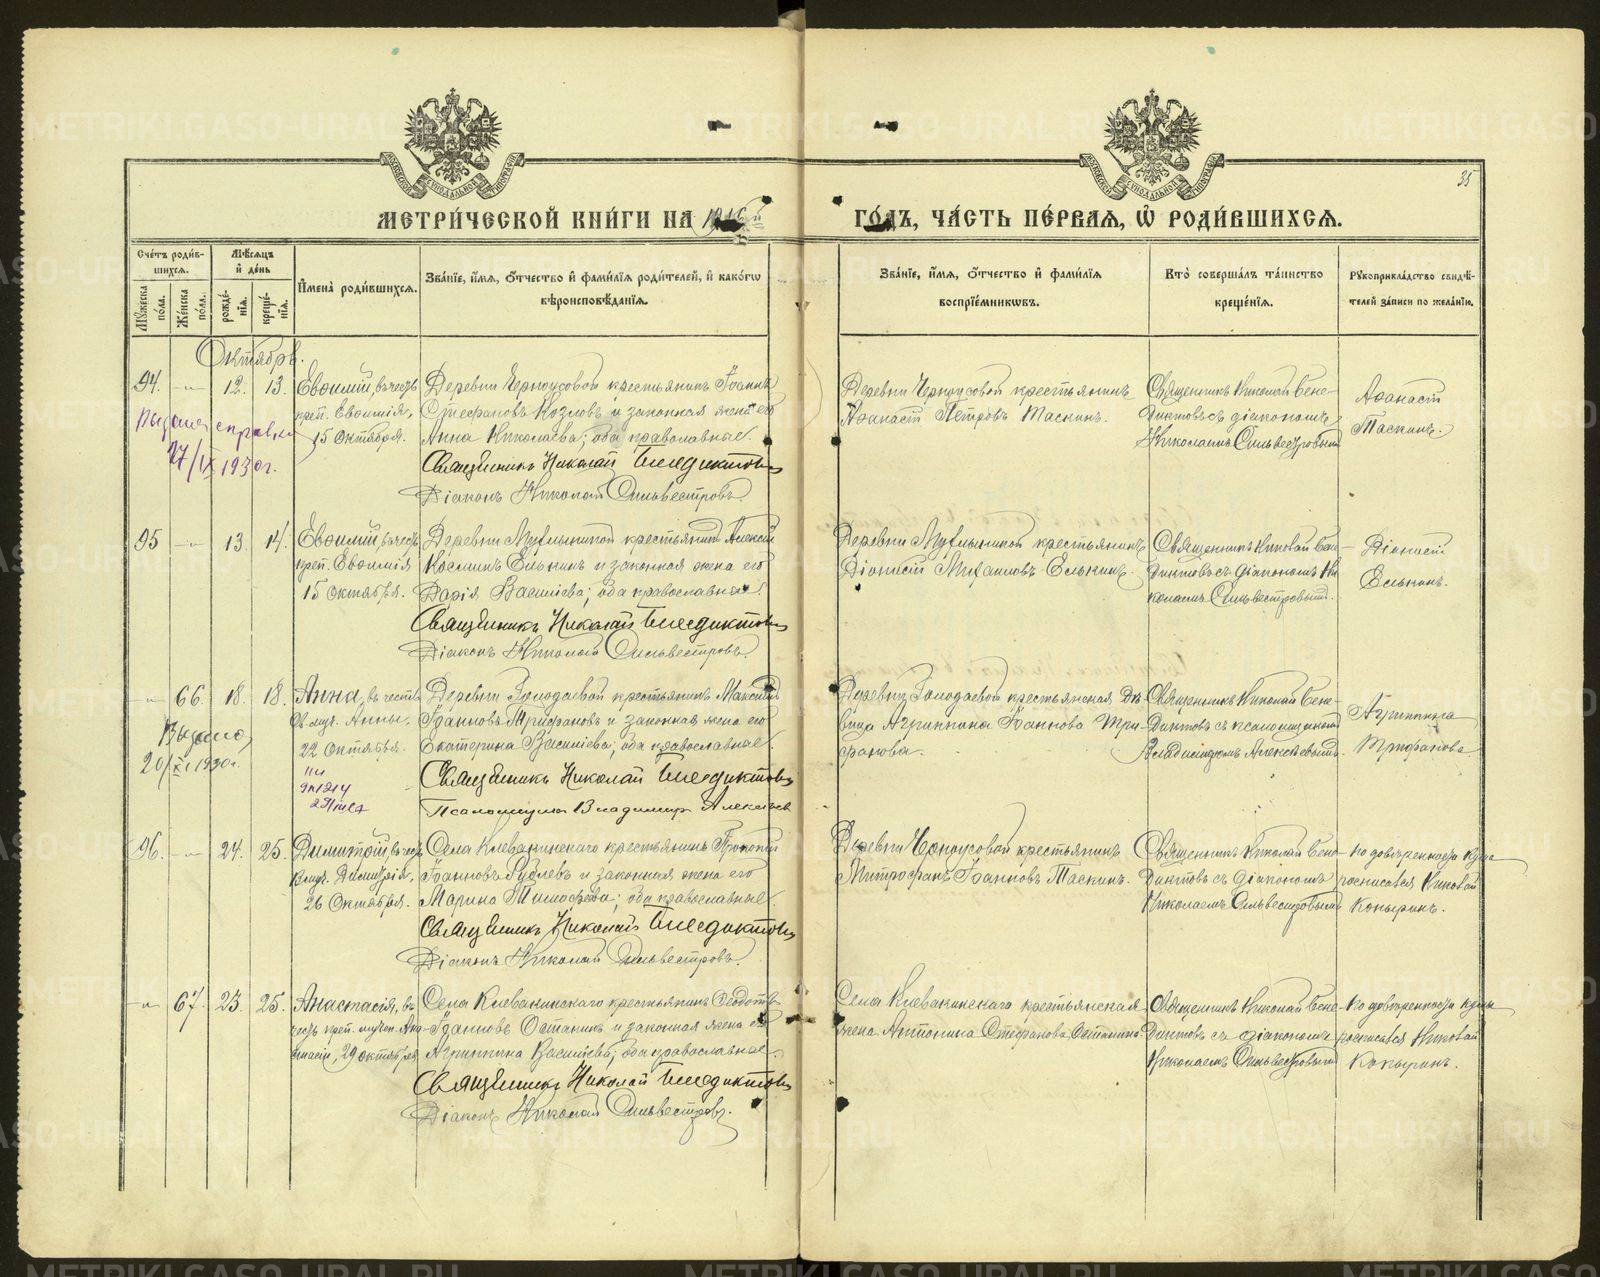 35
МЕТРИ́ЧЕСКОЙ КНИ́ГИ НА 1916й ГО́ДЪ, ЧА́СТЬ ПЕ́РВАЯ, Ѡ РОДИ́ВШИХСЯ.
Сче́тъ роди́в-
шихся.
Мѣ́сяцъ
и́ де́нь
Му́жеска
по́ла.
Же́нска
по́ла.
рожде́-
нія.
креще́-
нія.
И҆мена̀ роди́вшихся.
Зва́ніе, и҆́мя, ѻ҆́тчество и҆ фами́лія роди́телей, и҆ како́гѡ
вѣроисповѣ́данія.
Зва́ніе, и҆́мя, ѻ҆́тчество и҆ фами́лія
воспріе́мникѡвъ.
Кто̀ соверша́лъ та́инство
креще́нія.
Рукоприкла́дство свидѣ́-
телей за́писи по жела́нію.
Октябрь.
94. — 12. 13.
Евѳимій, въ честь
креп. Евѳимія,
15 Октября.
Деревни Черноусовой крестьянинъ Іоаннъ
Стефановъ Козловъ и законная жена его
Анна Николаева; оба православные.
Священникъ Николай Бенедиктовъ
Діаконъ Николай Сильвестровъ.
Деревни Черноусовой крестьянинъ
Аѳанасій Петровъ Таскинъ.
Священникъ Николай Бене-
диктовъ съ діакономъ
Николаемъ Сильвестровымъ
Аѳанасій
Таскинъ.
Выдана справка
27/IX 1930г.
95 — 13. 14.
Евѳимій, въ честь
креп. Евѳимія
15 Октября.
Деревни Мухлыниной крестьянинъ Алексій
Косминъ Елькинъ и законная жена его
Дарія Василіева; оба православные.
Священникъ Николай Бенедиктовъ
Діаконъ Николай Сильвестровъ.
Деревни Мухлыниной крестьянинъ
Діонисій Михаиловъ Елькинъ.
Священникъ Николай Бене-
диктовъ съ діакономъ Ни-
колаемъ Сильвестровымъ.
Діонисій
Елькинъ.
— 66. 18. 18.
Анна, въ честь
Св. муч. Анны,
22 Октября.
Деревни Голодаевой крестьянинъ Максимъ
Іоанновъ Трифановъ и законная жена его
Екатерина Василіева; оба православные.
Священникъ Николай Бенедиктовъ
Псаломщикъ Владимиръ Алексѣевъ
Деревни Голодаевой крестьянская дѣ-
вица Агриппина Іоаннова Три-
фанова.
Священникъ Николай Бене-
диктовъ съ псаломщикомъ
Владимиромъ Алексѣевымъ.
Агриппина
Трифанова
Выдано,
20/XI 1930г.
96. — 24. 25.
Димитрій, въ честь
Вмуч. Димитрія,
26 Октября.
Села Клевакинскаго крестьянинъ Прокопій
Іоанновъ Рублевъ и законная жена его
Марина Тимофеева; оба православные.
Священникъ Николай Бенедиктовъ
Діаконъ Николай Сильвестровъ.
Деревни Черноусовой крестьянинъ
Митрофанъ Іоанновъ Таскинъ.
Священникъ Николай Бене-
диктовъ съ діакономъ
Николаемъ Сильвестровымъ
По довѣренности кума
росписался Николай
Копыринъ.
— 67. 23. 25.
Анастасія, въ
честь преп. мучен. Ана-
стасіи, 29 октября
Села Клевакинскаго крестьянинъ Ѳеодотъ
Іоанновъ Останинъ и законная жена его
Агриппина Василіева; оба православные.
Священникъ Николай Бенедиктовъ
Діаконъ Николай Сильвестровъ.
Села Клевакинскаго крестьянская
жена Антонина Стефанова Останина.
Священникъ Николай Бене-
диктовъ съ діакономъ
Николаемъ Сильвестровымъ
По довѣренности кумы
росписался Николай
Копыринъ.